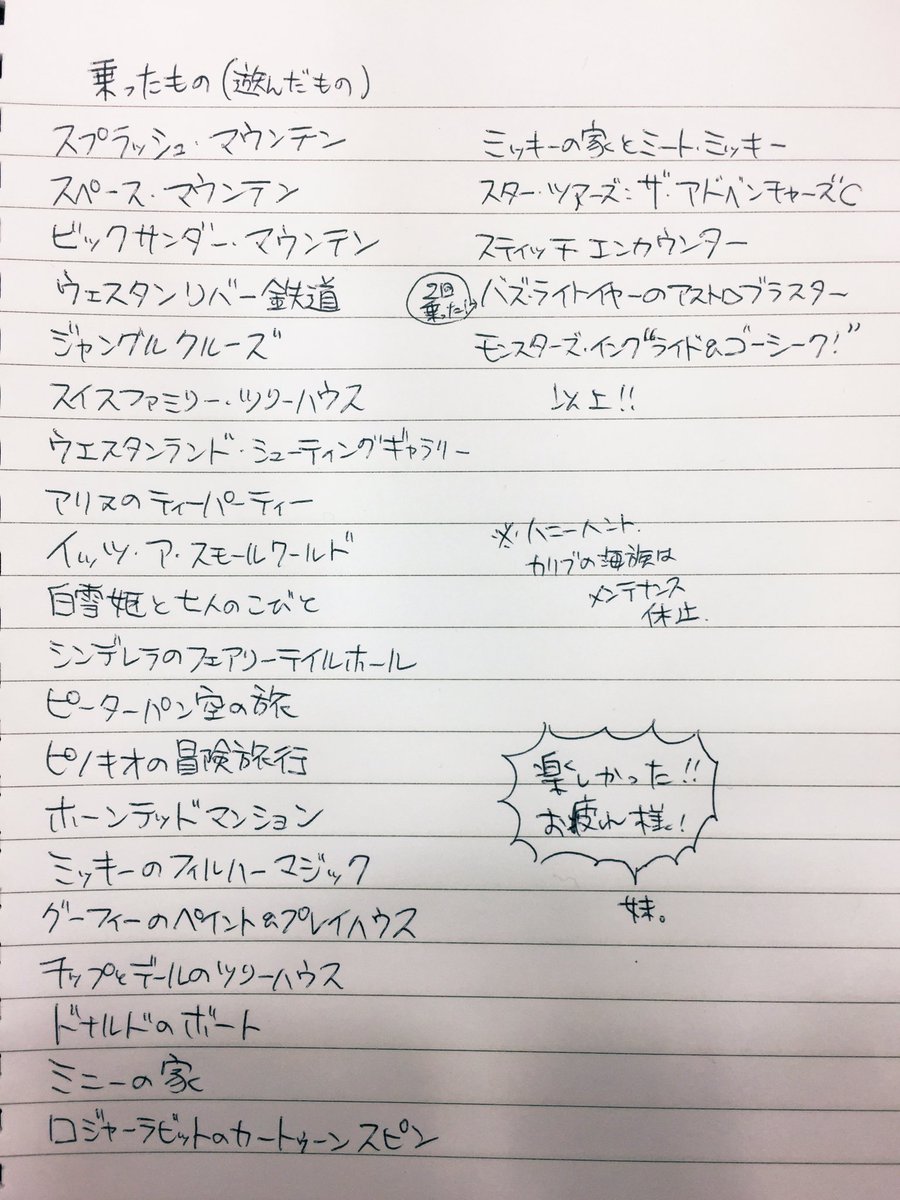 乗ったもの(遊んだもの)
スプラッシュ・マウンテン
スペース・マウンテン
ビックサンダー・マウンテン
ウェスタンリバー鉄道
ジャングルクルーズ
スイスファミリー・ツリーハウス
ウエスタンランド・シューティングギャラリー
アリスのティーパーティー
イッツ・ア・スモールワールド
白雪姫と七人のこびと
シンデレラのフェアリーテイルホール
ピーターパン空の旅
ピノキオの冒険旅行
ホーンテッドマンション
ミッキーのフィルハーマジック
グーフィーのペイント&プレイハウス
チップとデールのツリーハウス
ドナルドのボート
ミニーの家
ロジャーラビットのカートゥーンスピン
ミッキーの家とミート・ミッキー
スター・ツアーズ:ザ・アドベンチャーズC
スティッチエンカウンター
2回
乗った
バズ・ライトイヤーのアストロブラスター
モンスターズ・インク"ライド&ゴーシーク!"
以上!!
※ハニーハント.
カリブの海族は
メンテナンス
休止.
楽しかった!!
お疲れ様!
妹。